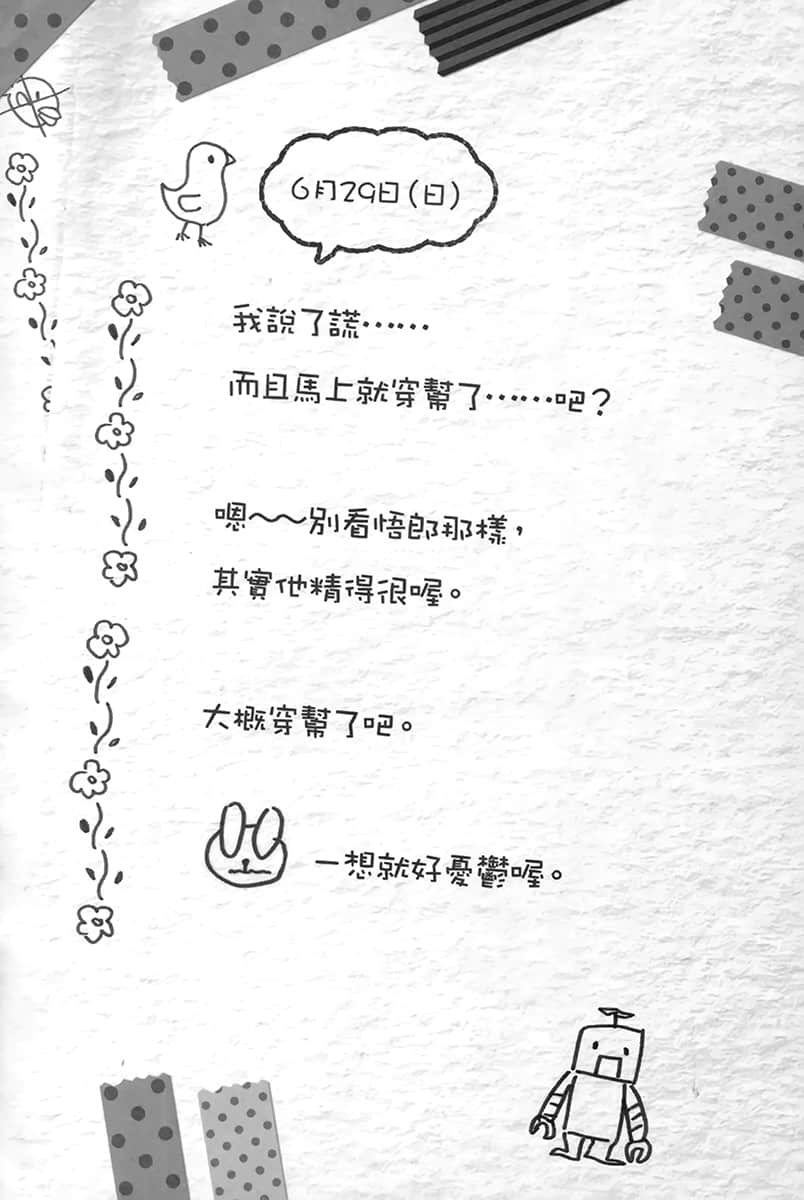 6月29日(日)
我說了謊……
而且馬上就穿幫了……吧?
嗯~~別看悟郎那樣,
其實他精得很喔。
大概穿幫了吧。
一想就好憂鬱喔。